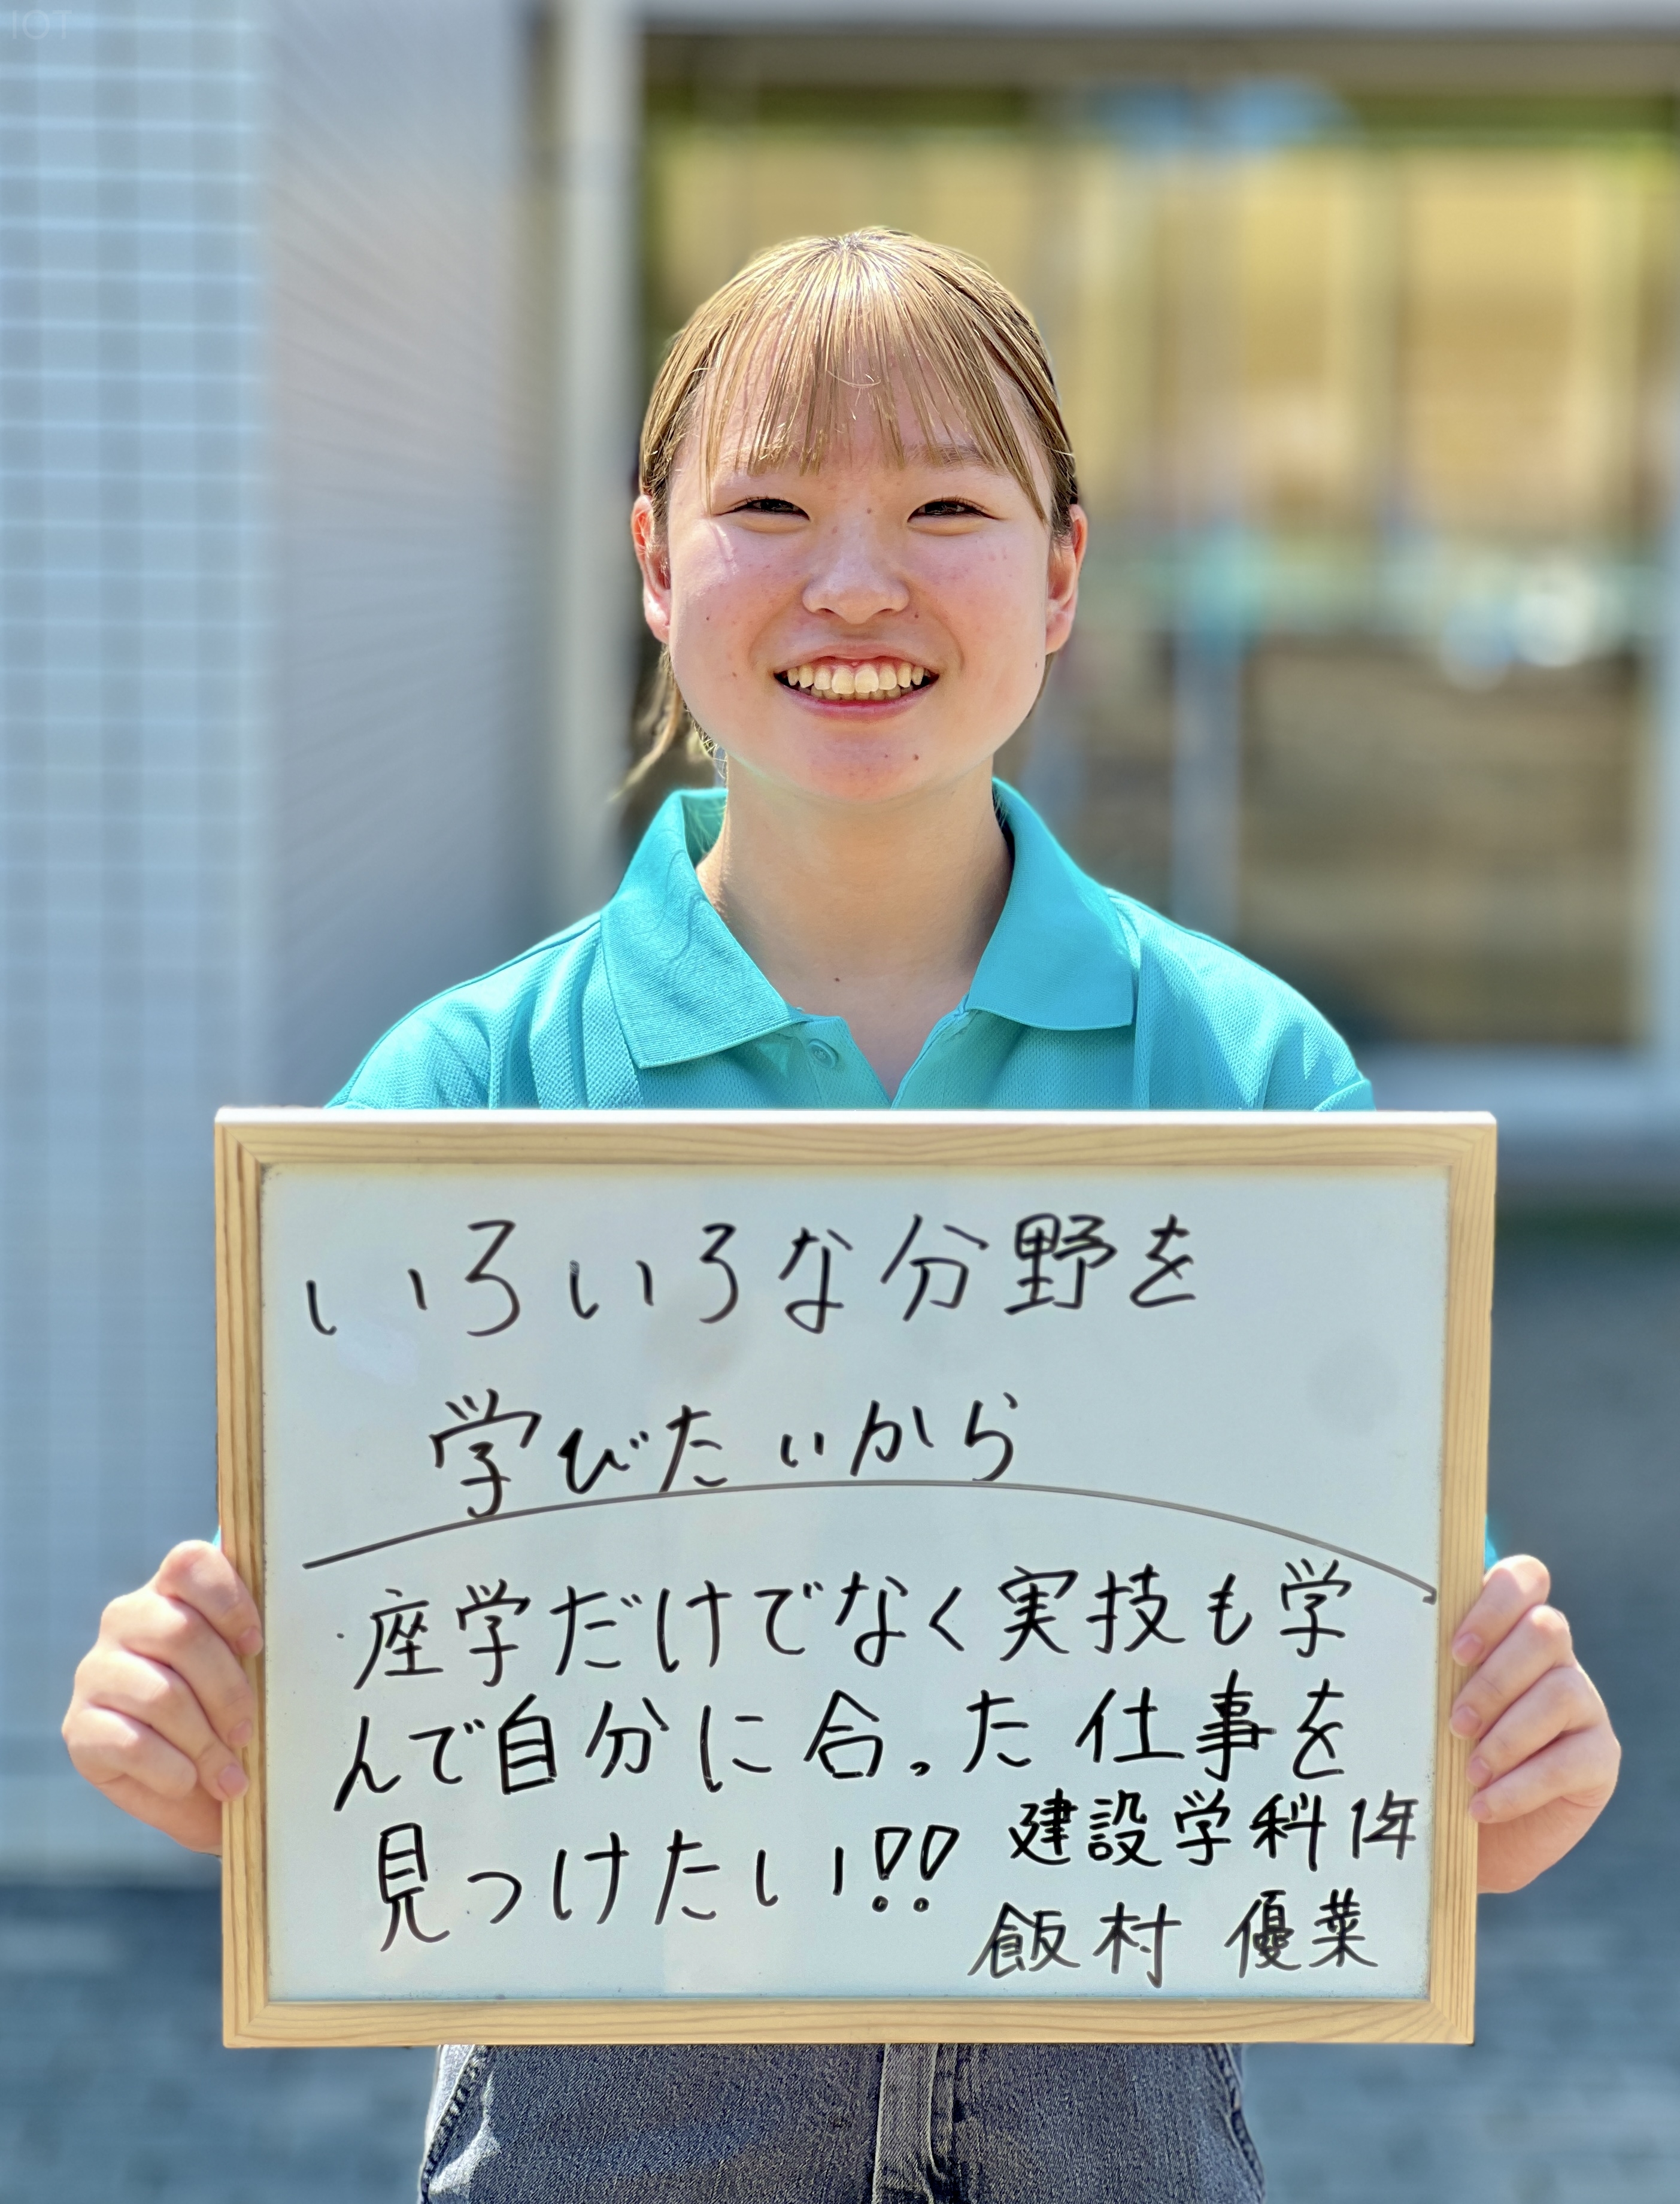 IOT
いろいろな分野を
学びたいから
・座学だけでなく実技も学
んで自分に合った仕事を
見つけたい!!
建設学科1年
飯村 優菜